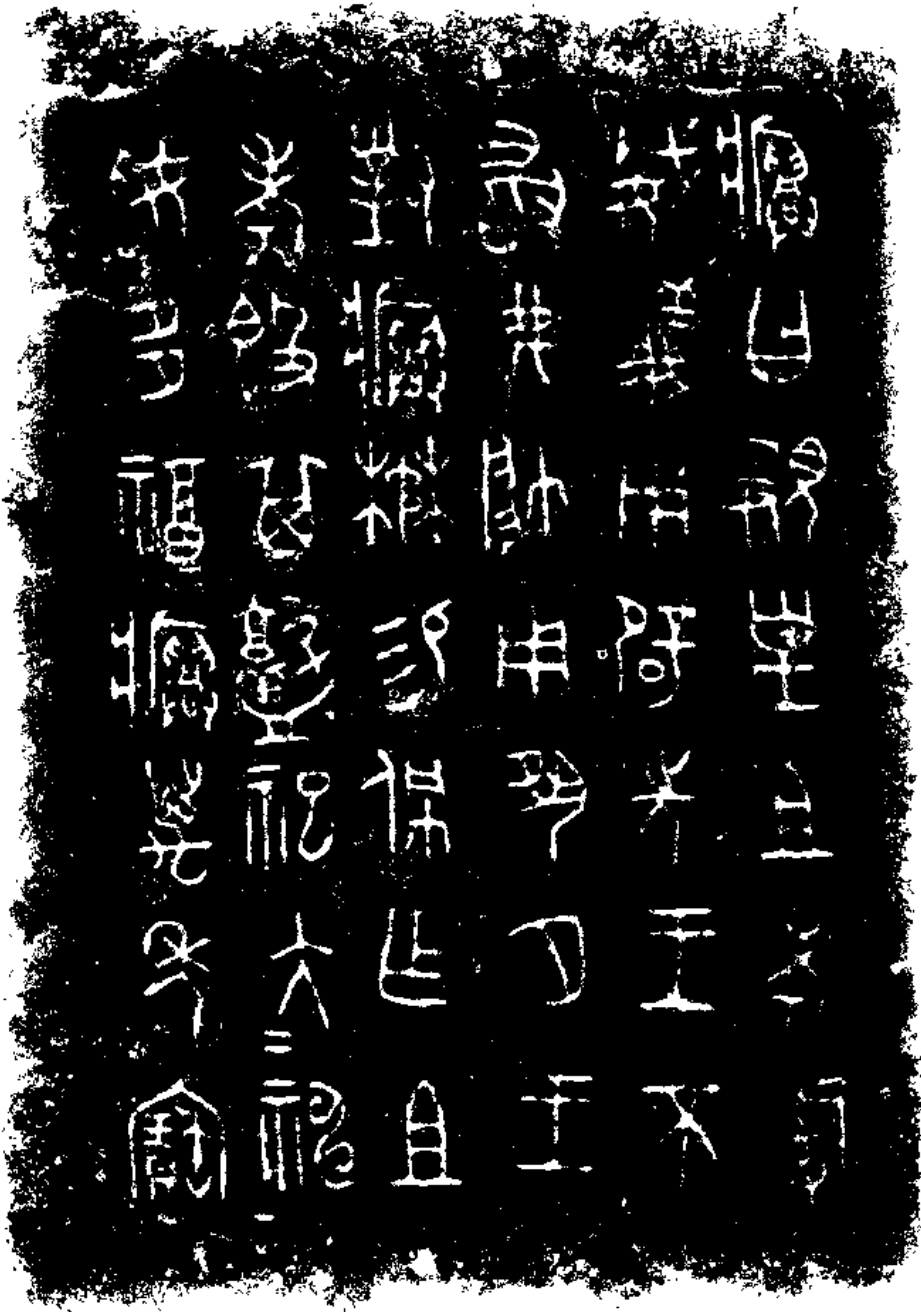 㾓曰覭皇且考司
威義用辟先王不
敢弗帥用夙夕王
對㾓楙易佩乍且
考𣪘其𩰫祀大＝神＝
妥多福㾓萬年寶